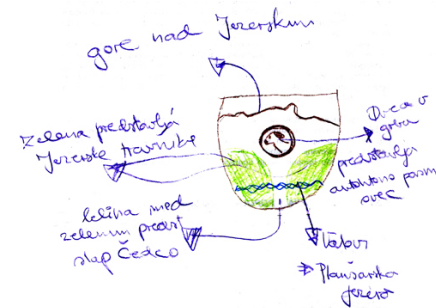 gore nad Jezerskim
zelena predstavlja
Jezerske travnike
Ovca v
grbu
predstavlja
avtohtono pasmo
ovec
belina med
zelenim predst
slap Čedco
Tabor
Planšarsko
jezero